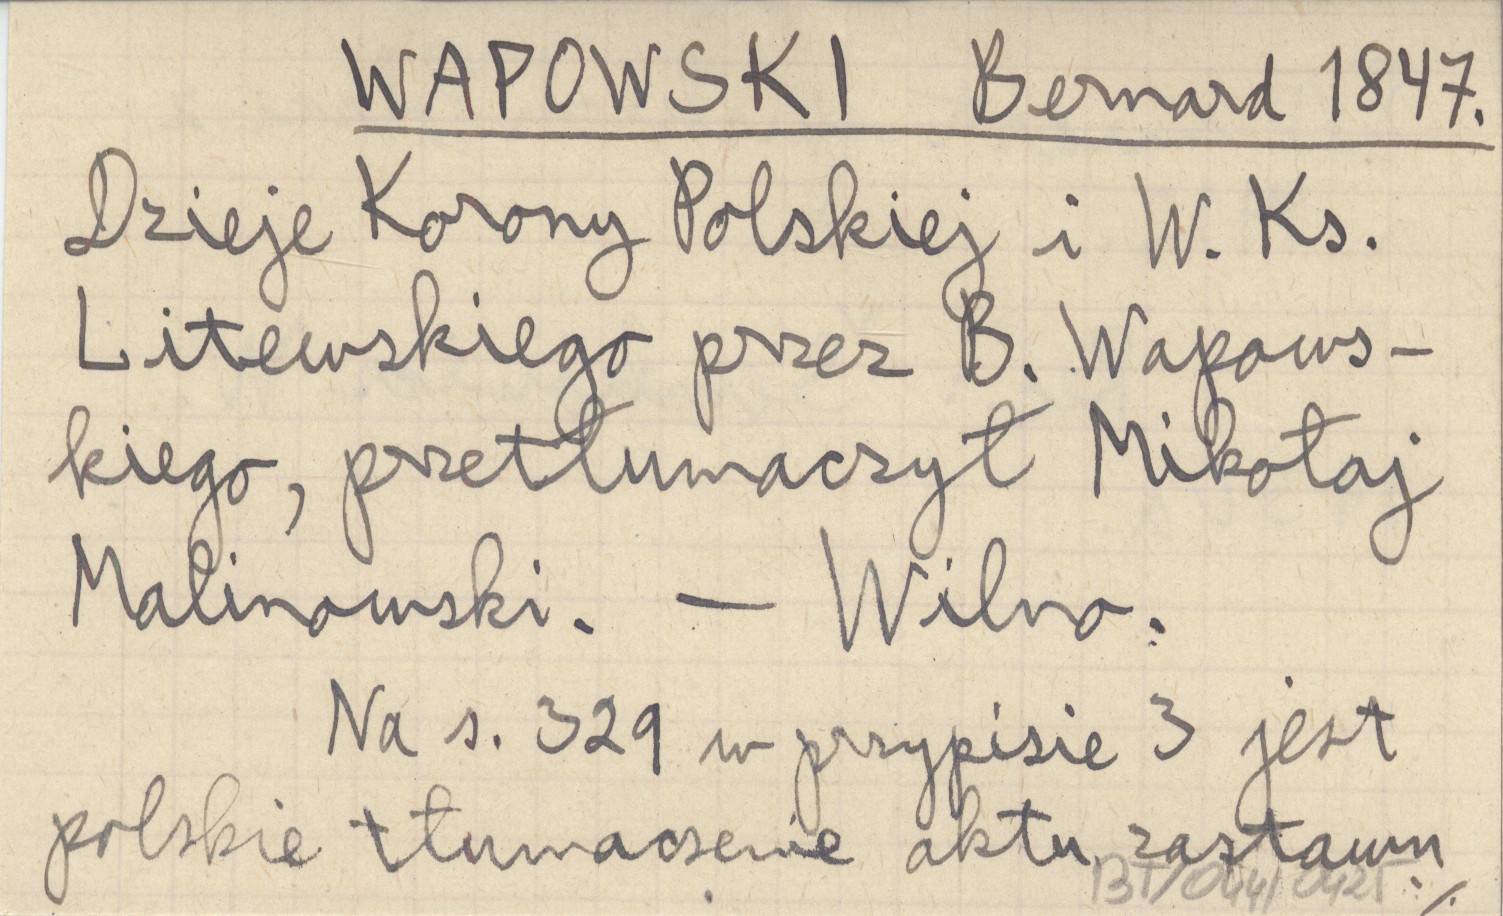 WAPOWSKI Bernard 1847.
Dzieje Korony Polskiej i W. Ks.
Litewskiego przez B. Wapows-
kiego, przetłumaczył Mikołaj
Malinowski. — Wilno.
Na s. 329 w przypisie 3 jest
polskie tłumaczenie aktu zastawu
BT/044/0425 ./.